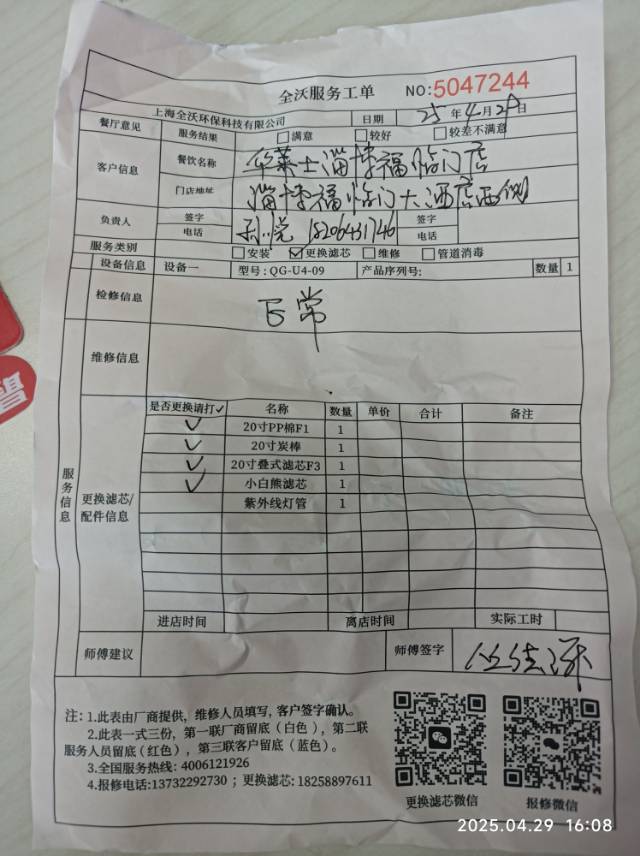 全沃服务工单 NO:5047244
上海全沃环保科技有限公司 日期 25年4月29日
餐厅意见 服务结果 满意 较好 较差不满意
客户信息 餐饮名称 华莱士淄博福临门店
门店地址 淄博福临门大酒店西侧
负责人 签字 电话 孙悦 18206431746 签字 电话
服务类别 安装 ✓更换滤芯 维修 管道消毒
设备信息 设备一 型号:QG-U4-09 产品序列号: 数量 1
检修信息 正常
维修信息
服务信息
更换滤芯/配件信息
是否更换请打✓ 名称 数量 单价 合计 备注
✓ 20寸PP棉F1 1
✓ 20寸炭棒 1
✓ 20寸叠式滤芯F3 1
✓ 小白熊滤芯 1
紫外线灯管 1
进店时间 离店时间 实际工时
师傅建议 师傅签字
注: 1.此表由厂商提供，维修人员填写，客户签字确认。
2.此表一式三份，第一联厂商留底（白色），第二联
服务人员留底(红色)，第三联客户留底（蓝色）。
3.全国服务热线: 4006121926
4.报修电话:13732292730；更换滤芯: 18258897611
更换滤芯微信 报修微信
2025.04.29 16:08